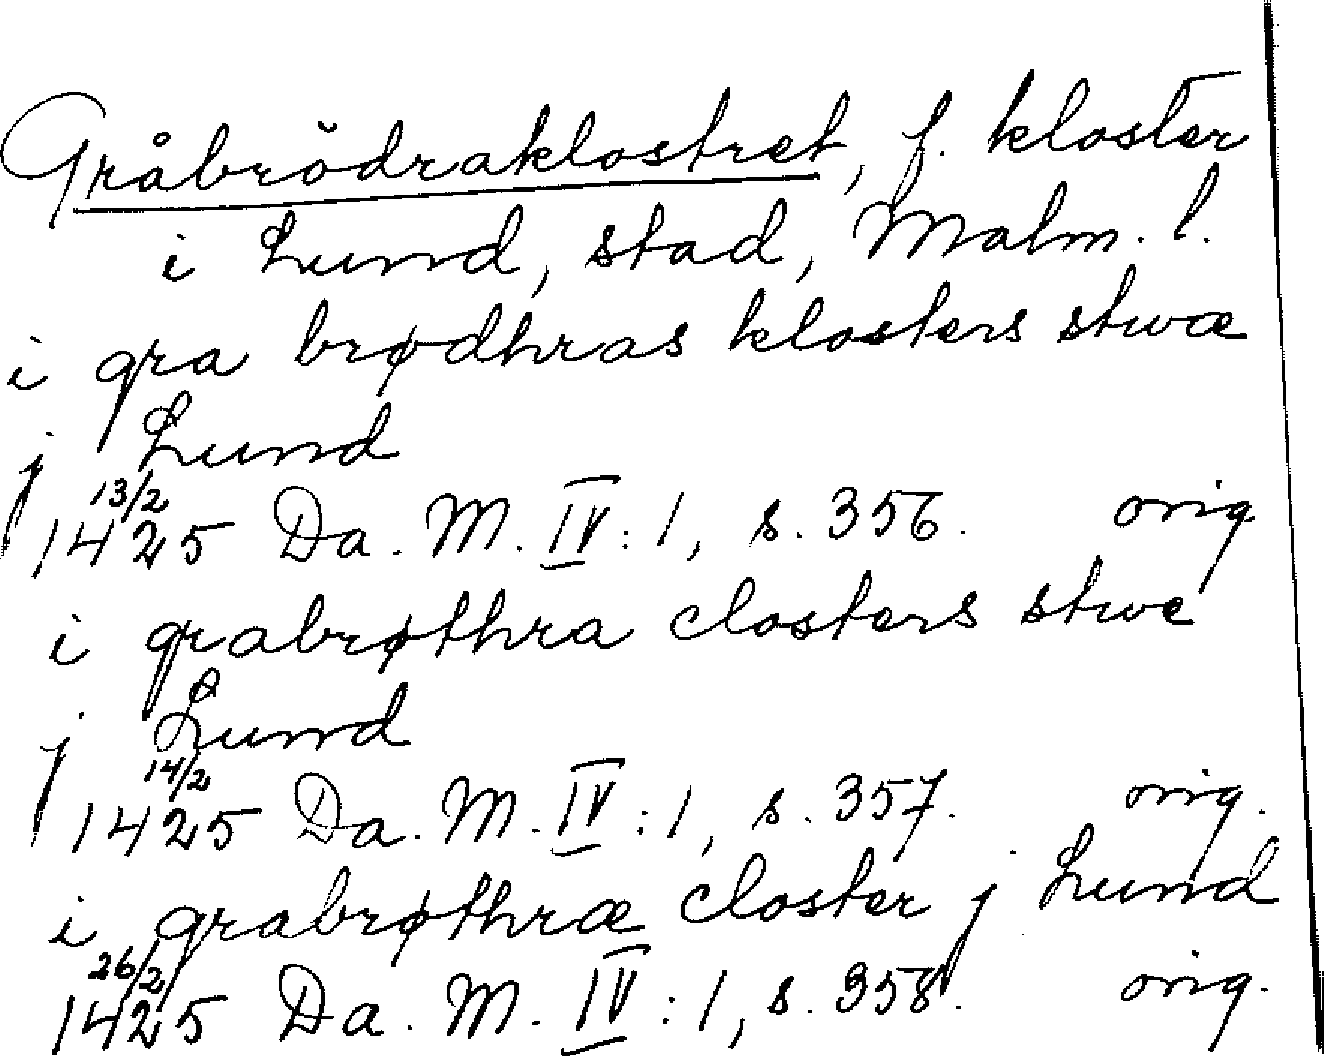 Gråbrödraklostret, f. kloster
i Lund, stad, Malm. l.
i gra brødhras klosters stwæ
j Lund
13/2
1425 Da. M. IV:1, s. 356. orig
i grabrøthra closters stwe
j Lund
14/2
1425 Da. M. IV:1, s. 357. orig.
i grabrøthræ closter j Lund
26/2
1425 Da. M. IV:1, s. 358. orig.